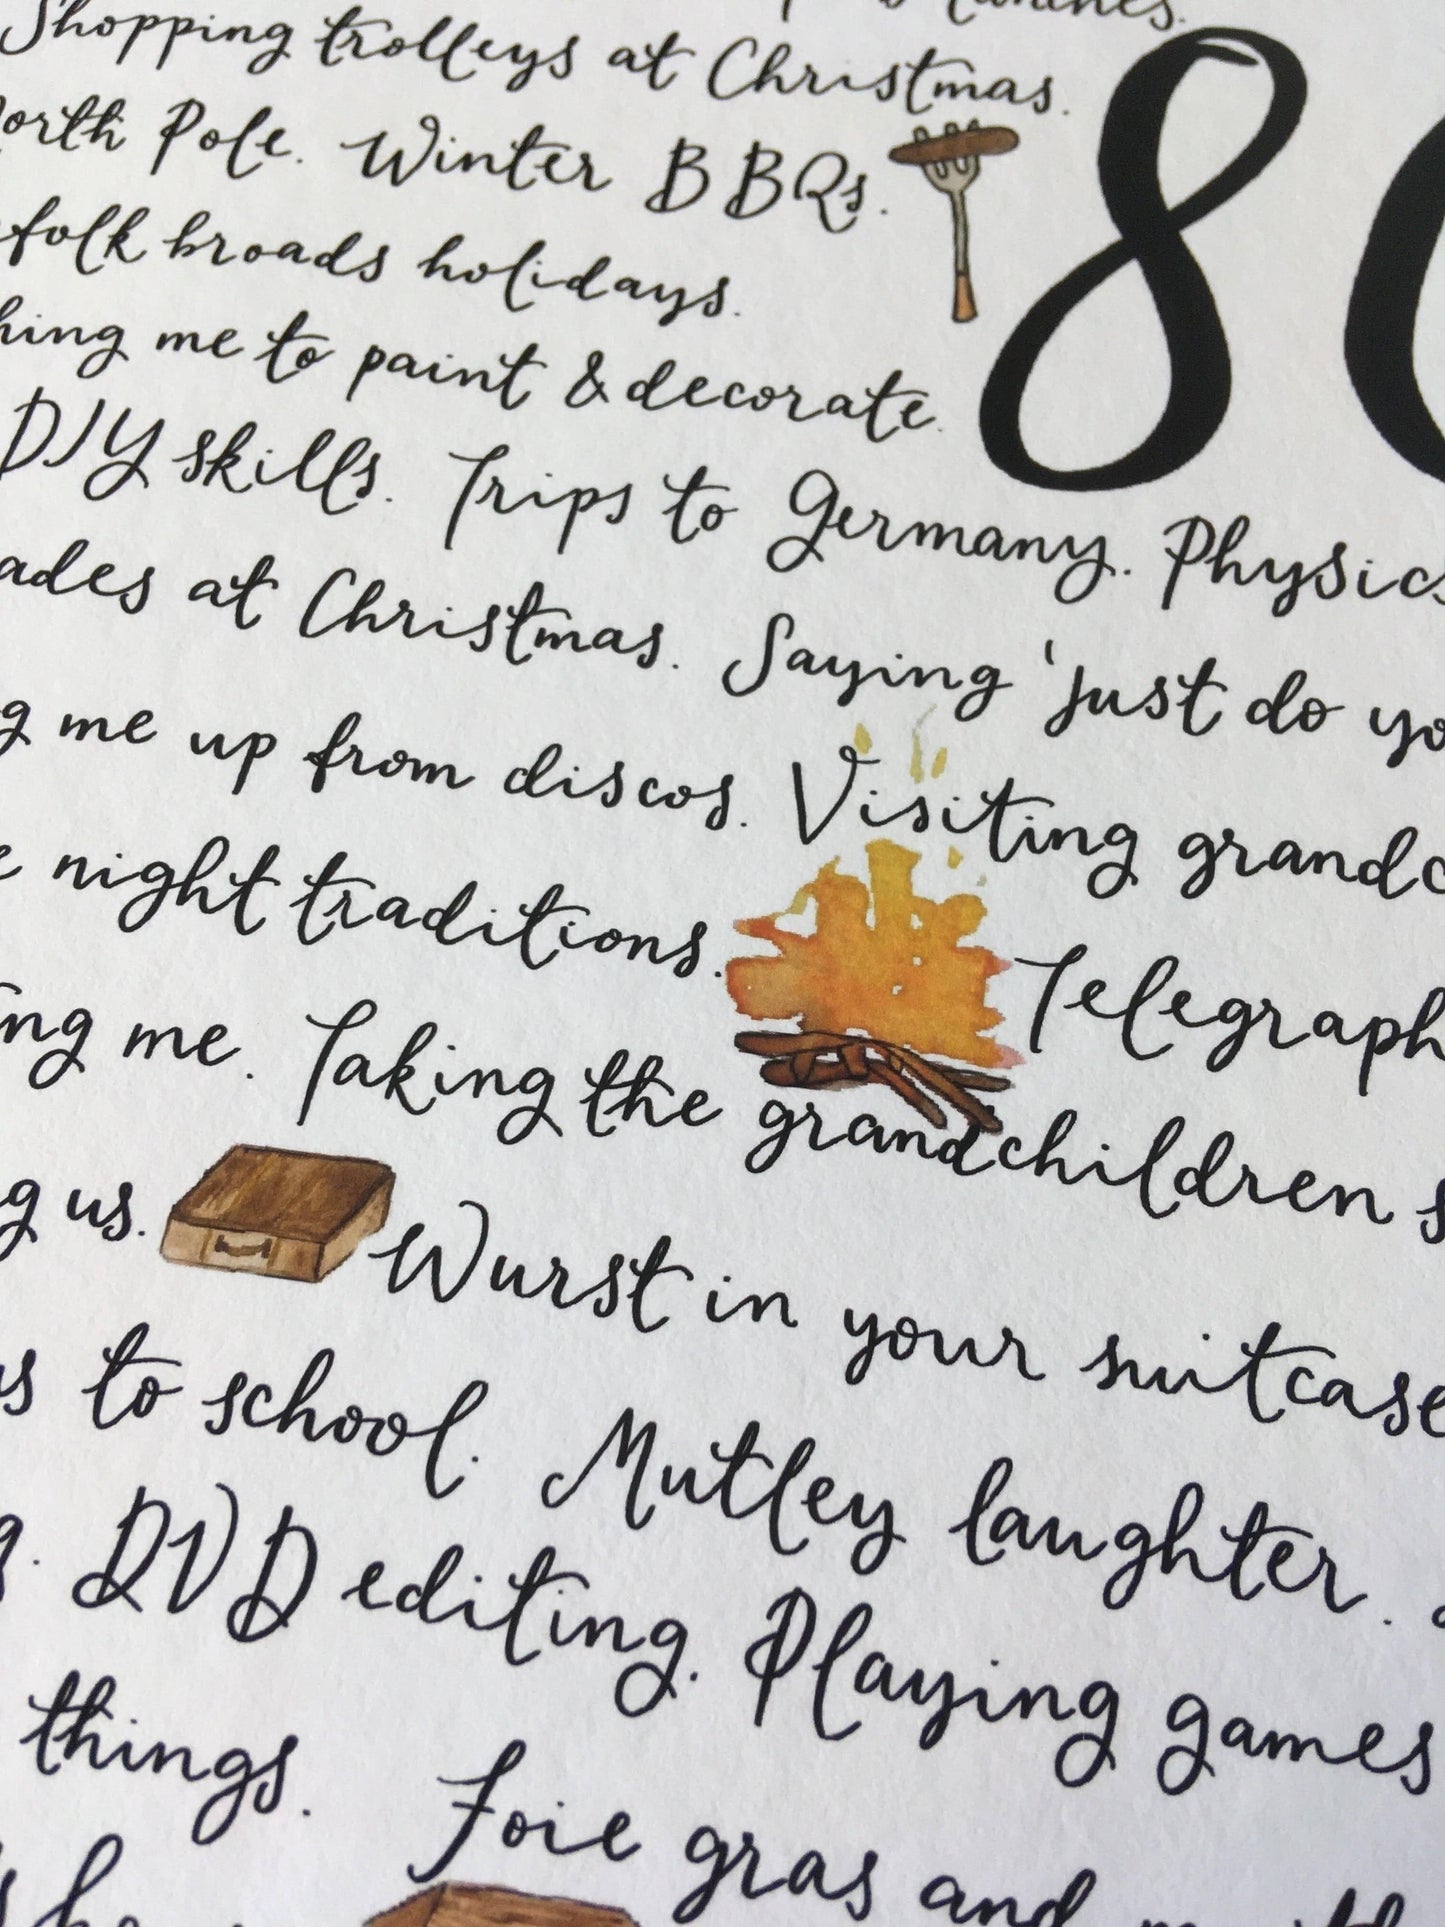 Shopping trolleys at Christmas.
Pole. Winter BBQs.
80
broads holidays.
me to paint & decorate.
DIY skills. Trips to Germany. Physics
at Christmas. Saying 'just do
me up from discos. Visiting
night traditions. Telegraph
me. Taking the grandchildren
us. Wurst in your suitcase
to school. Mutley laughter.
DVD editing. Playing games
things. Foie gras and